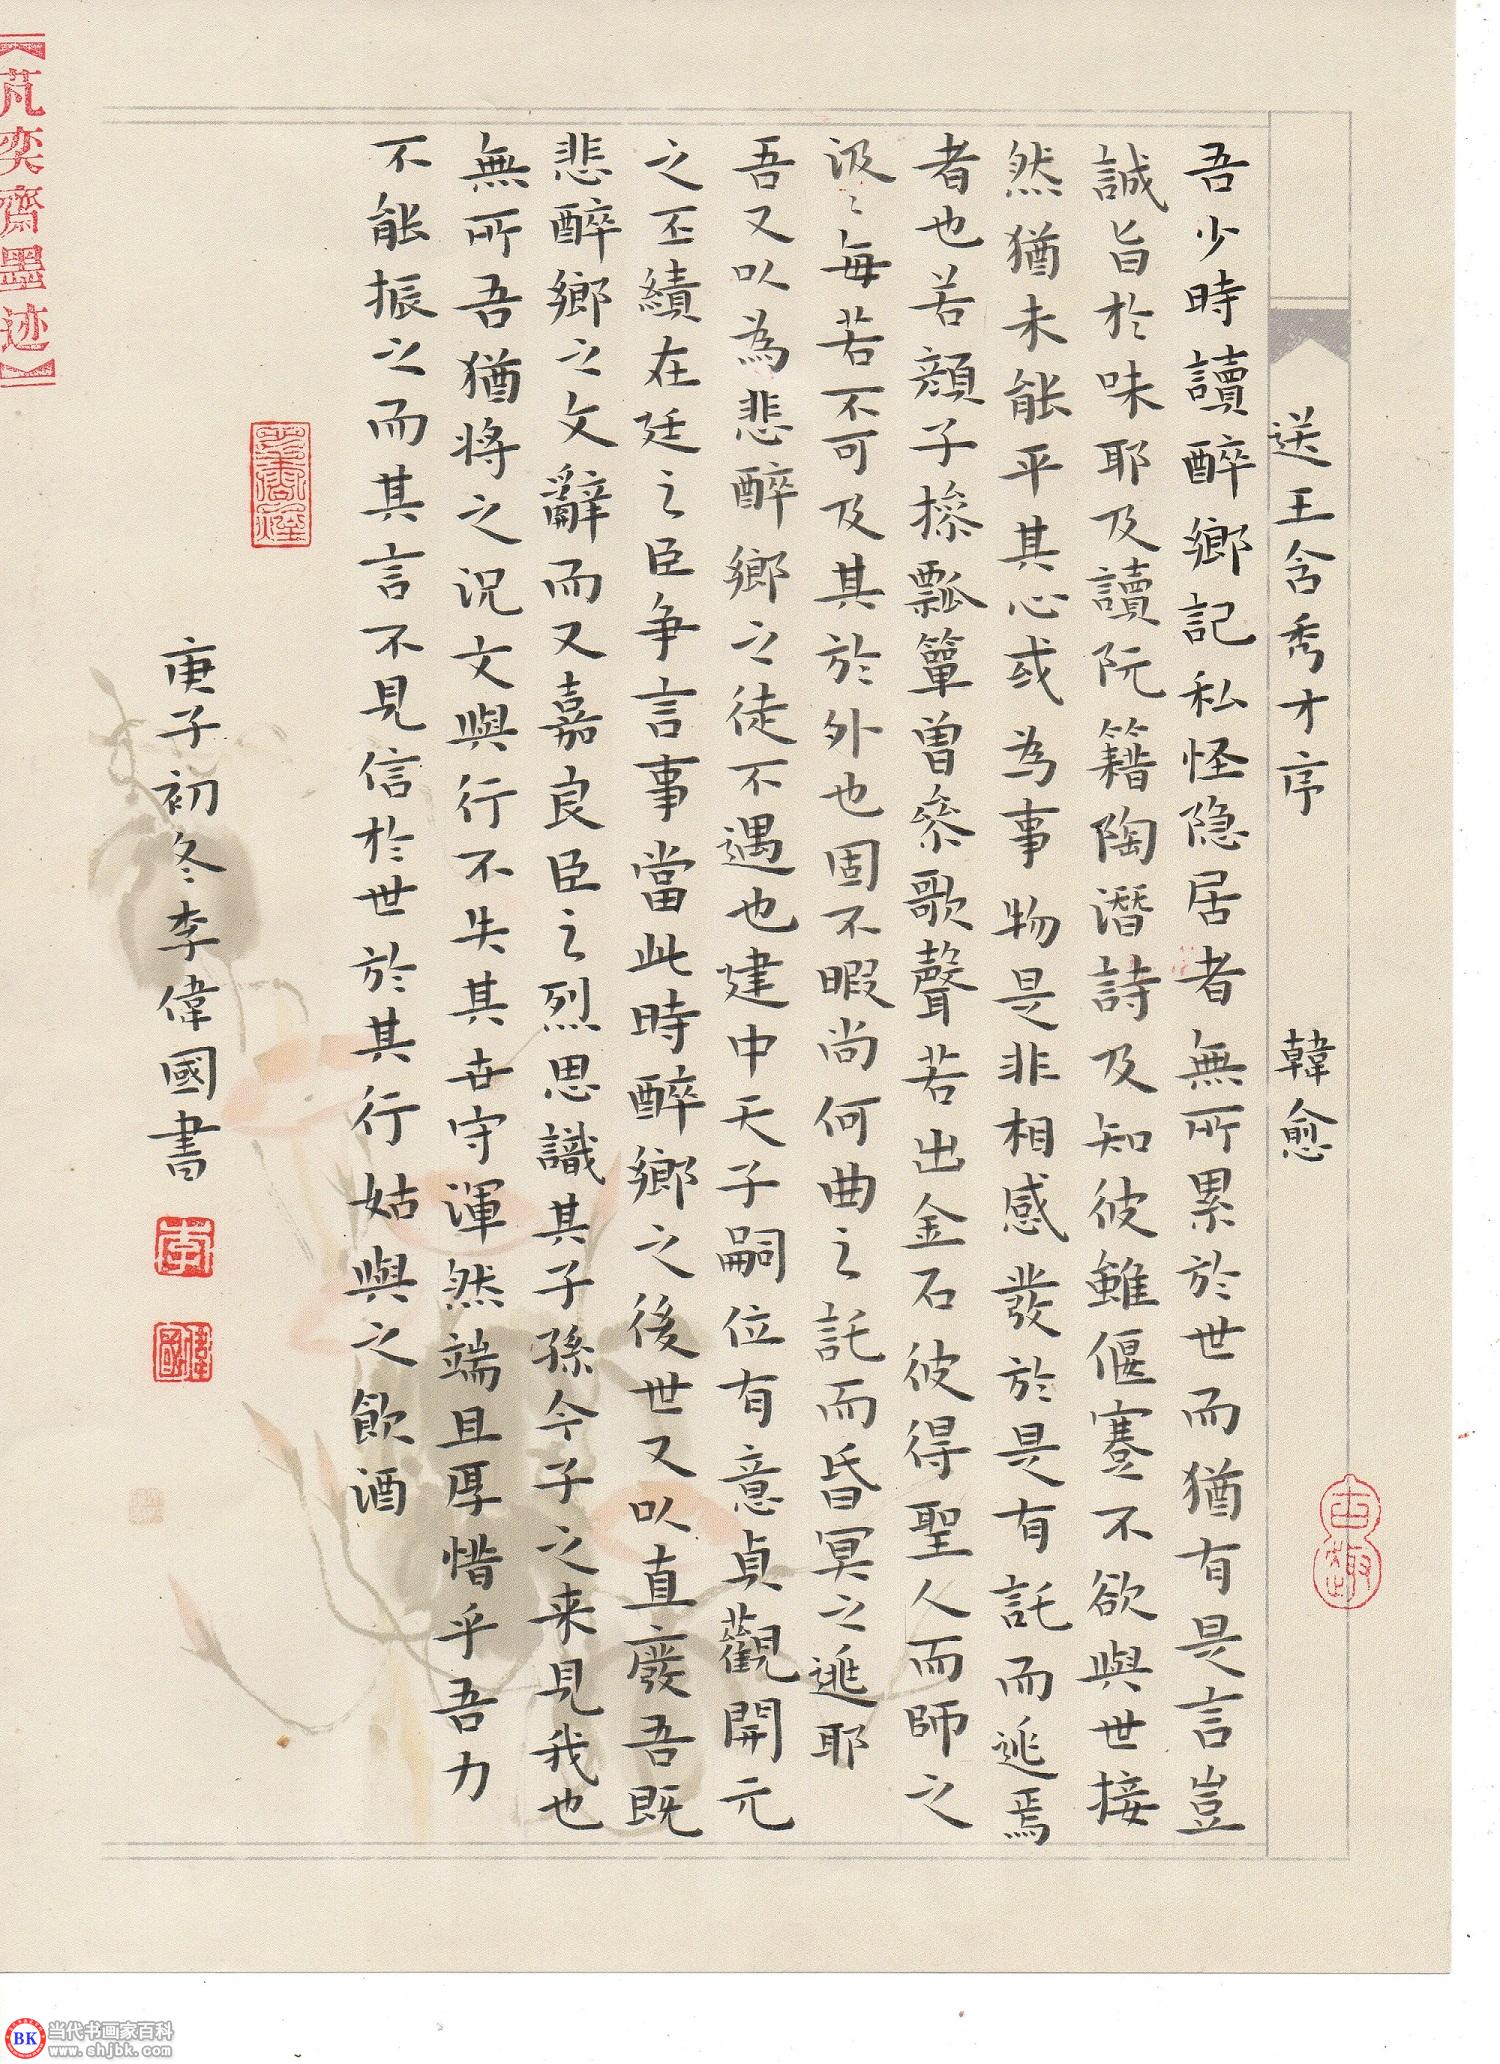 送王含秀才序 韓愈
吾少時讀醉鄉記私怪隐居者無所累於世而猶有是言豈
誠旨於味耶及讀阮籍陶潛詩及知彼雖偃蹇不欲與世接
然猶未能平其心或為事物是非相感發於是有託而逃焉
者也若顔子操瓢簞曽參歌聲若出金石彼得聖人而師之
汲〻每若不可及其於外也固不暇尚何曲之託而昏冥之逃耶
吾又以為悲醉鄉之徒不遇也建中天子嗣位有意貞觀開元
之丕績在廷之臣争言事當此時醉鄉之後世又以直廢吾既
悲醉鄉之文辭而又嘉良臣之烈思識其子孫今子之来見我也
無所吾猶将之况文與行不失其世守渾然端且厚惜乎吾力
不能振之而其言不見信於世於其行姑與之飲酒
庚子初冬李偉國書
李
偉國
【芃奕齋墨迹】
BK 当代书画家百科
www.shjbk.com